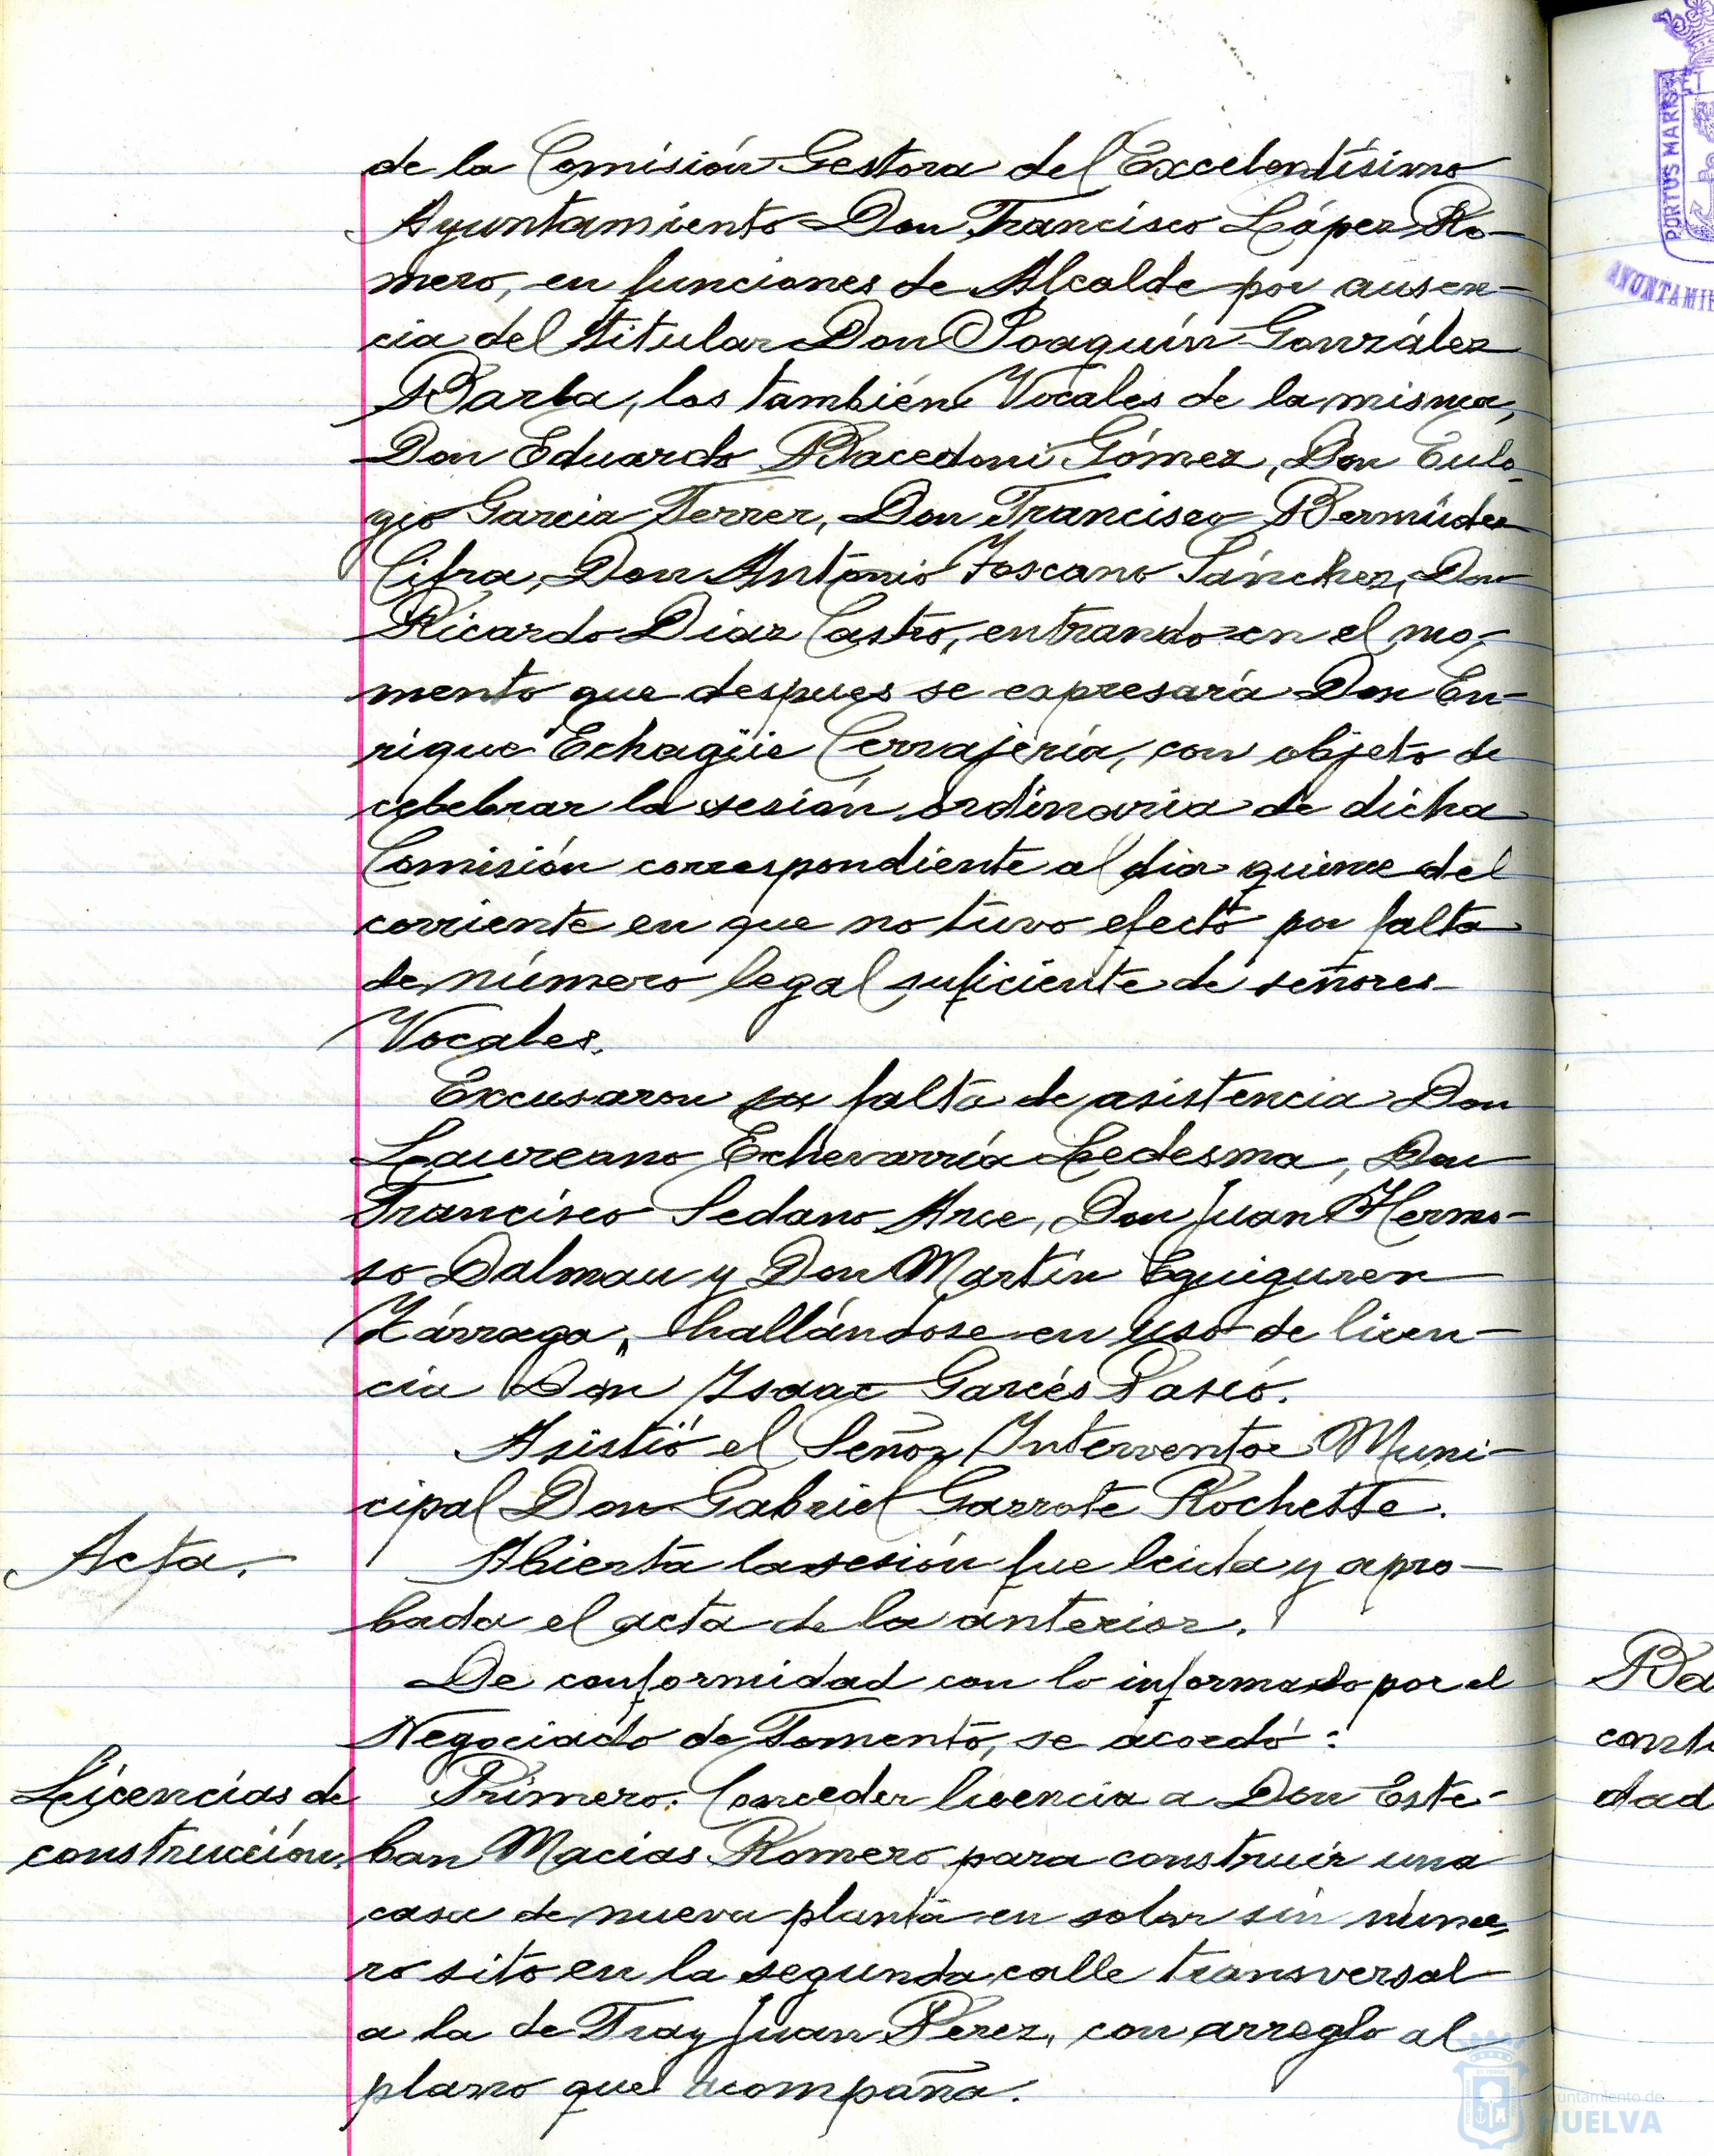 de la Comisión Gestora del Excelentísimo
Ayuntamiento Don Francisco López Ro-
mero, en funciones de Alcalde por ausen-
cia del titular Don Joaquín González
Barba, los también Vocales de la misma,
Don Eduardo Bacedoni Gómez, Don Eulo-
gio Garcia Ferrer, Don Francisco Bermúdez
Cifra, Don Antonio Toscano Sánchez, Don
Ricardo Diaz Castro, entrando en el mo-
mento que despues se expresará Don En-
rique Echagüie Cerrajería, con objeto de
cebebrar la sesión ordinaria de dicha
Comisión correspondiente al dia quince del
corriente en que no tuvo efecto por falta
de número legal suficiente de señores
Vocales.
Excusaron su falta de asistencia Don
Laureano Echevarría Ledesma, Don
Francisco Sedano Arce, Don Juan Hermo-
so Dalmau y Don Martín Eguiguren
Zárraga, hallándose en uso de licen-
cia Don Isaac Garcés Pasió.
Asistió el Señor Interventor Muni-
cipal Don Gabriel Garrote Rochette.
Acta.
Abierta la sesión fue leida y apro-
bada el acta de la anterior.
De conformidad con lo informado por el
Negociado de Fomento, se acordó:
Licencias de
construcción.
Primero. Conceder licencia a Don Este-
ban Macias Romero para construir una
casa de nueva planta en solar sin núme-
ro sito en la segunda calle transversal
a la de Fray Juan Pérez, con arreglo al
plano que acompaña.
PORTUS MARIS ET
AYUNTAMIE
Ba
conti
dad
Ayuntamiento de
HUELVA